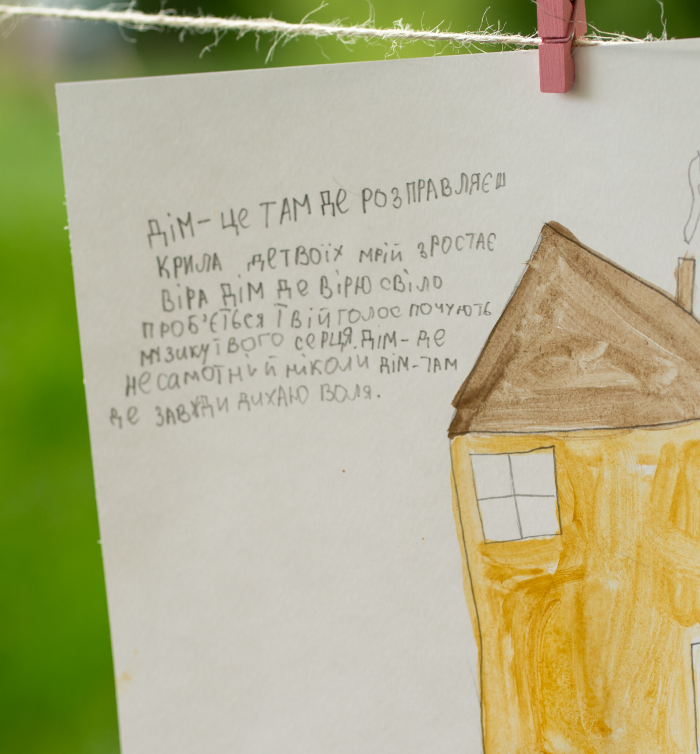 ДІМ – ЦЕ ТАМ ДЕ РОЗПРАВЛЯЄШ
КРИЛА ДЕТВОЇХ МРІЙ ЗРОСТАЄ
ВІРА ДІМ ДЕ ВІРЮ СВІЛО
ПРОБ'ЄТЬСЯ ІВІЙ ГОЛОС ПОЧУЮТЬ
МУЗИКУ ІВОГО СЕРЦЯ. ДІМ – ДЕ
НЕСАМОТНІЙ НІКОЛИ ДІМ – ТАМ
ДЕ ЗАВЖДИ ДИХАЮ ВОЛЯ.